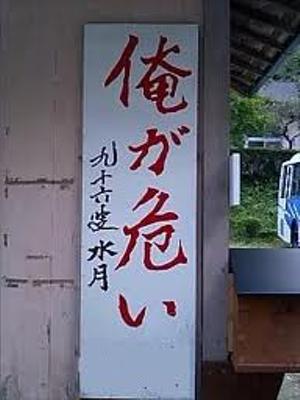 俺が危い
九十六叟 水月